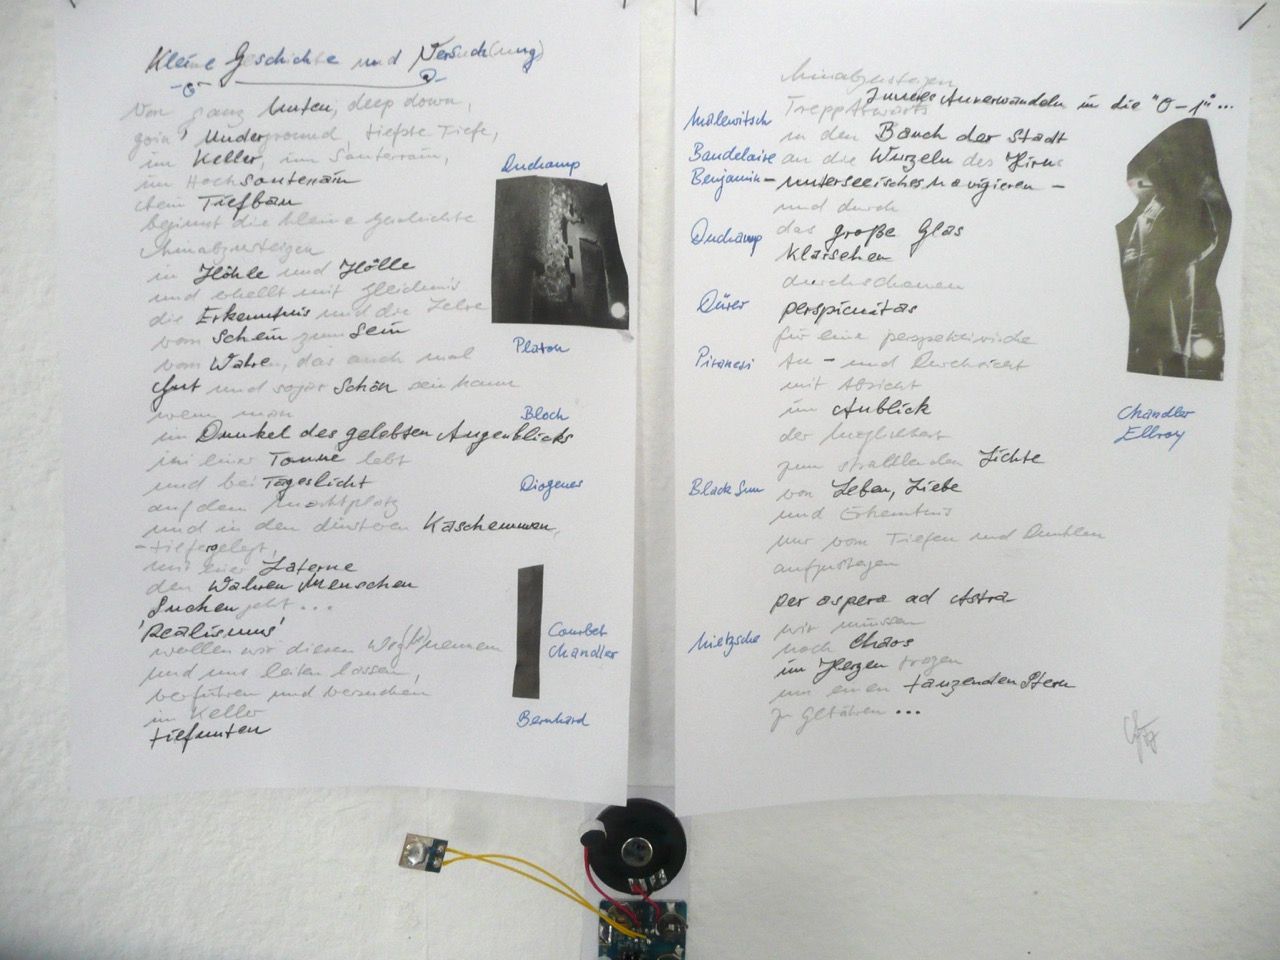 Kleine Geschichte und Versuch(ung)
Von ganz Unten, deep down,
goin' Underground, tiefste Tiefe,
im Keller, im Souterrain,
im Hochsouterrain
dem Tiefbau
beginnt die kleine Geschichte
Hinabzusteigen
in Höhle und Hölle
und erhellt mit Gleichnis
die Erkenntnis und die Lehre
vom Schein zum Sein
vom Wahren, das auch mal
Gut und sogar Schön sein kann
wenn man
im Dunkel des gelebten Augenblicks
in einer Tonne lebt
und bei Tageslicht
auf dem Marktplatz
und in den düsteren Kaschemmen,
- tiefergelegt,
mit einer Laterne
den Wahren Menschen
Suchen geht ...
'Realismus'
wollen wir diesen Weg(k) nennen
und uns leiten lassen,
verführen und versuchen
im Keller
tiefunten
Duchamp
Platon
Bloch
Diogenes
Courbet
Chandler
Bernhard
Hinabzusteigen
Treppabwärts
in die "0-1" ...
in den Bauch der Stadt
an die Wurzeln des Hirns
- unterseeisches Navigieren -
und durch
das große Glas
klärschen
durchschauen
perspicuitas
für eine perspektivische
An- und Durchsicht
mit Absicht
im Anblick
der Möglichkeit
zum strahlenden Lichte
von Leben, Liebe
und Erkenntnis
nur vom Tiefen und Dunklen
aufzusteigen
per aspera ad Astra
wir müssen
noch Chaos
im Herzen tragen
um einen tanzenden Stern
zu Gebären ...
Malewitsch
Baudelaire
Benjamin
Duchamp
Dürer
Piranesi
Black Sun
Nietzsche
Chandler
Ellroy